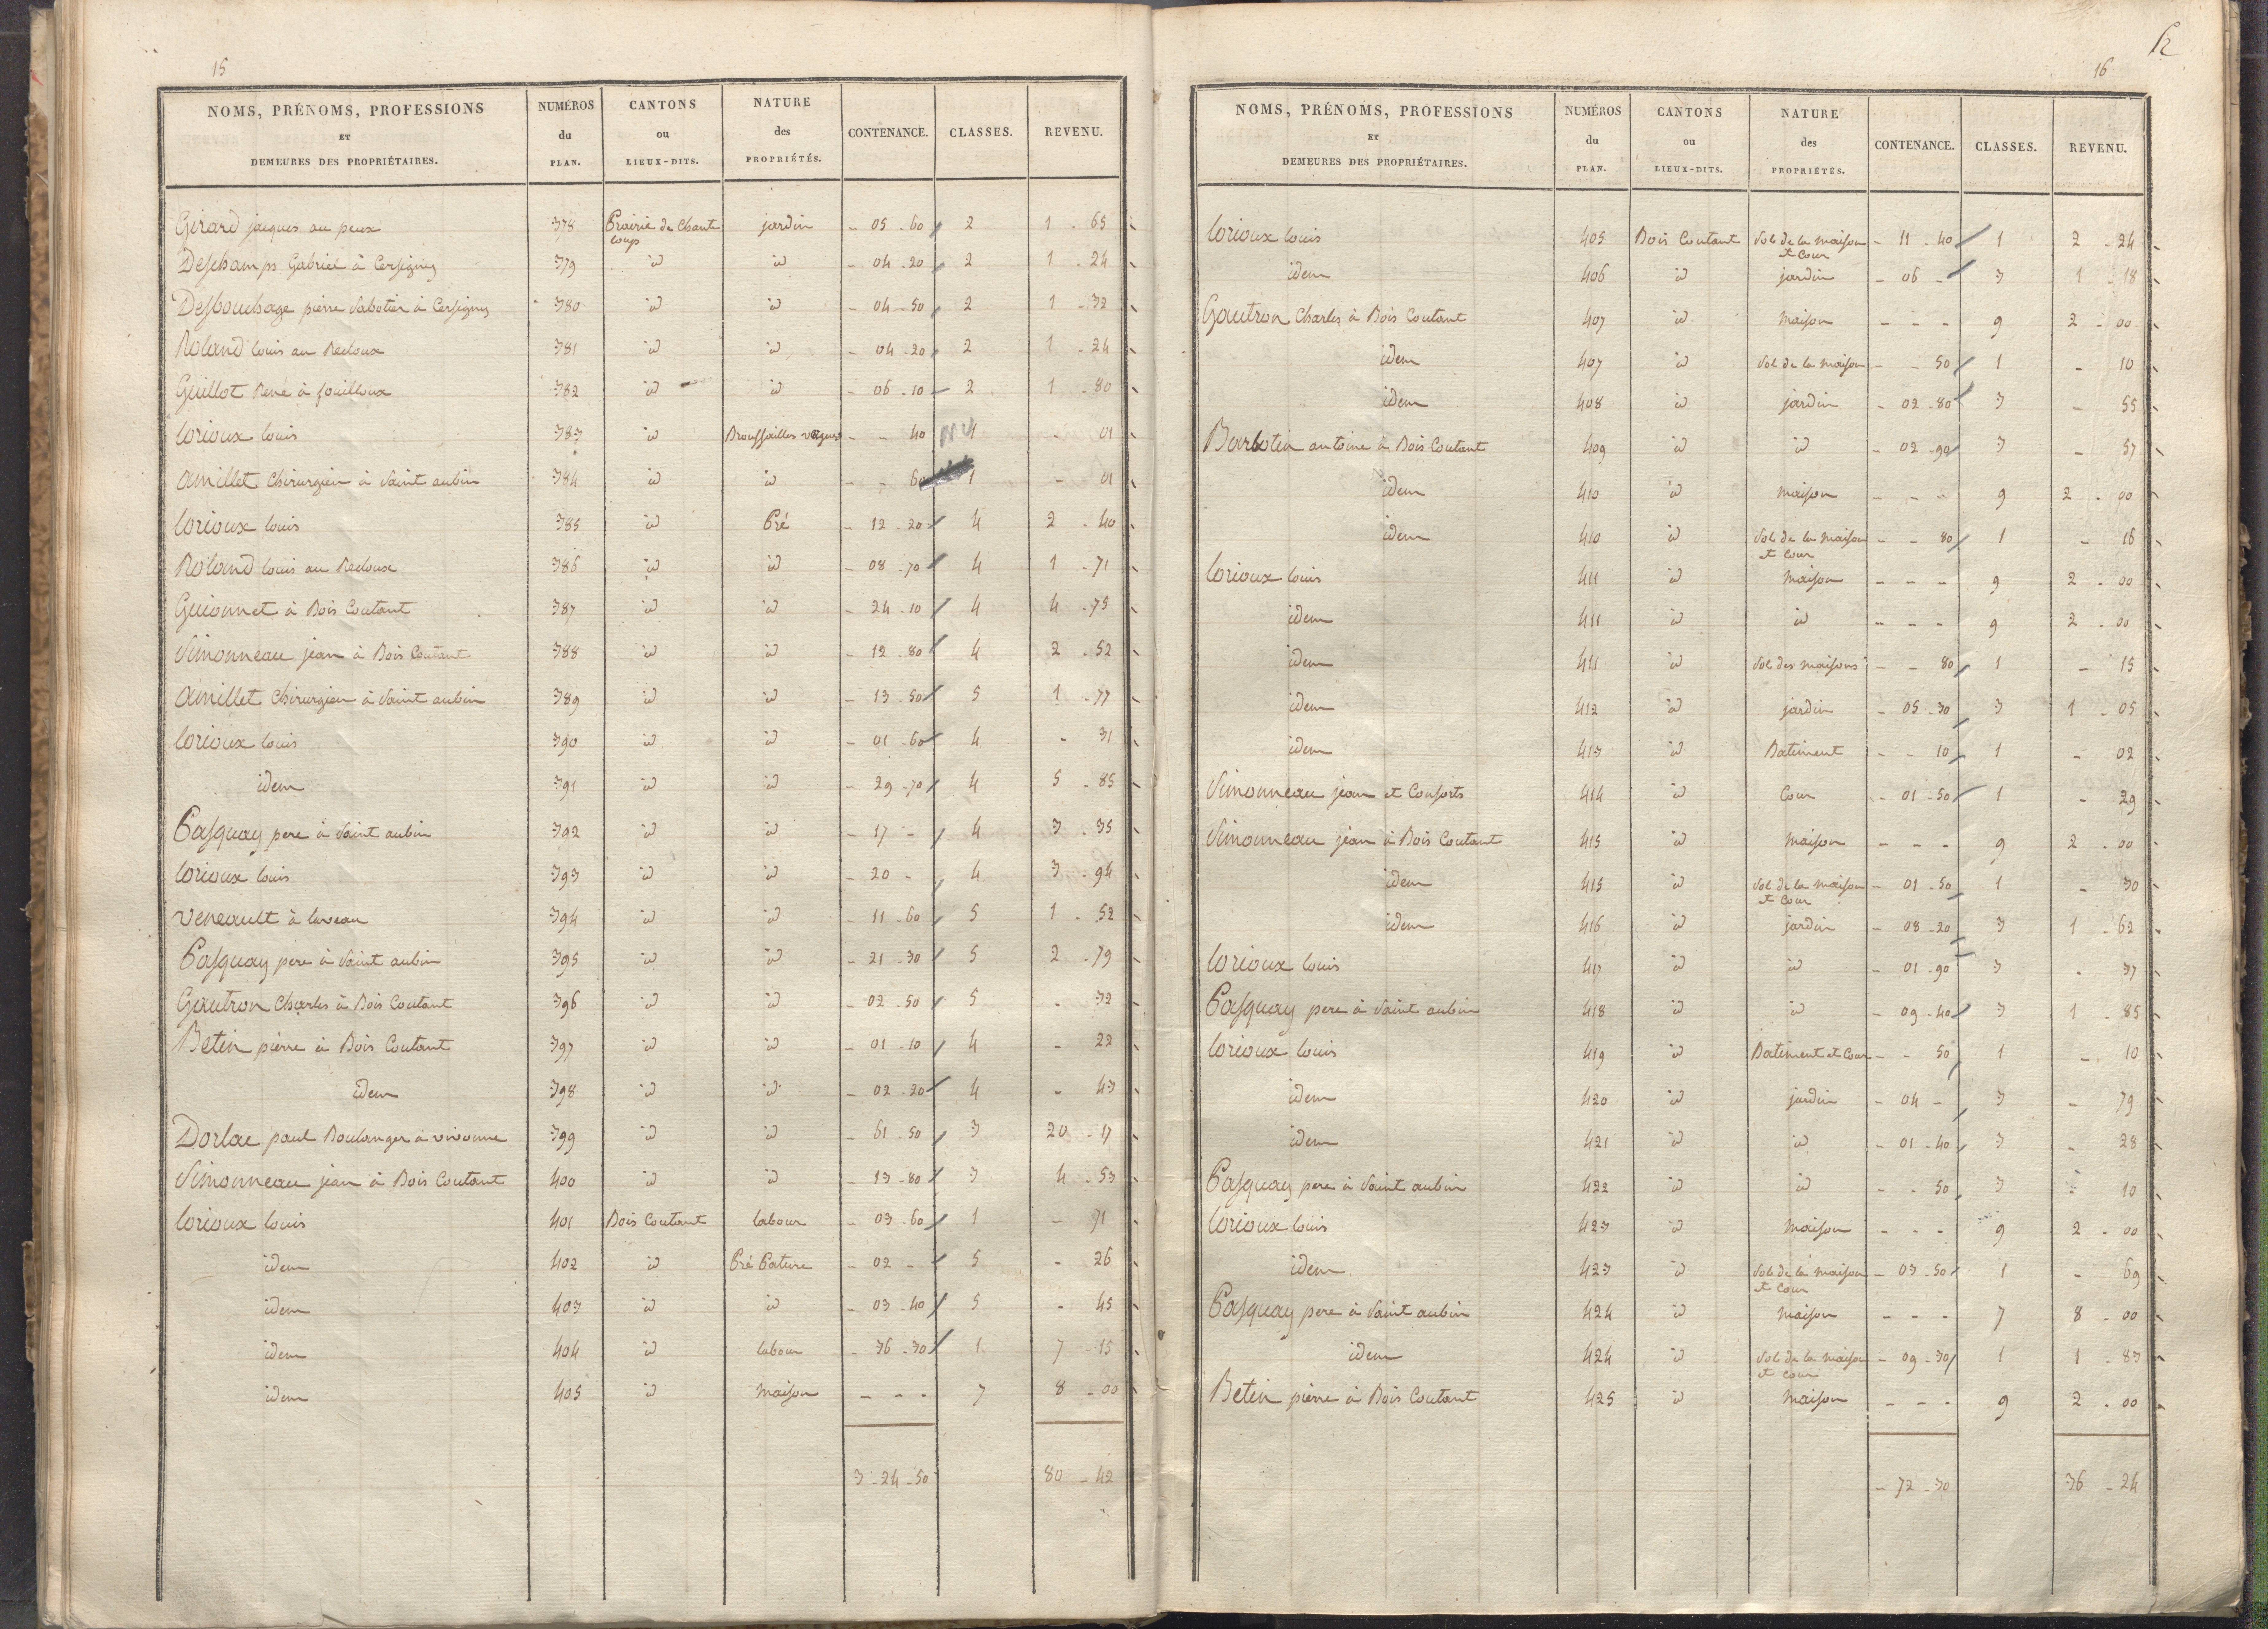 15
NOMS, PRÉNOMS, PROFESSIONS ET DEMEURES DES PROPRIÉTAIRES. NUMÉROS du PLAN. CANTONS ou LIEUX-DITS. NATURE des PROPRIÉTÉS. CONTENANCE. CLASSES. REVENU.
Girard jacques au peux 378 Prairie de Chante loups jardin - 05 - 60 2 1 - 65
Deschamps Gabriel à Cersigny 379 id id - 04 - 20 2 1 - 24
Desbouchage pierre Sabotier à Cersigny 380 id id - 04 - 50 2 1 - 32
Roland louis au Redoux 381 id id - 04 - 20 2 1 - 24
Guillot René à fouilloux 382 id id - 06 - 10 2 1 - 80
lorioux louis 383 id Broussailles vagues - - 40 1 - 01
amillet Chirurgien à Saint aubin 384 id id - - 60 1 - 01
lorioux louis 385 id Pré - 12 - 20 4 2 - 40
Roland louis au Redoux 386 id id - 08 - 70 4 1 - 71
Guionnet à Bois Coutant 387 id id - 24 - 10 4 4 - 75
Simonneau jean à Bois Coutant 388 id id - 12 - 80 4 2 - 52
amillet Chirurgien à Saint aubin 389 id id - 13 - 50 5 1 - 77
lorioux louis 390 id id - 01 - 60 4 - 31
idem 391 id id - 29 - 70 4 5 - 85
Pasquay pere à Saint aubin 392 id id - 17 - 4 3 - 35
lorioux louis 393 id id - 20 - 4 3 - 94
veneault à 394 id id - 11 - 60 5 1 - 52
Pasquay pere à Saint aubin 395 id id - 21 - 30 5 2 - 79
Gautron Charles à Bois Coutant 396 id id - 02 - 50 5 - 32
Betin pierre à Bois Coutant 397 id id - 01 - 10 4 - 22
idem 398 id id - 02 - 20 4 - 43
Dorlac paul Boulanger à vivonne 399 id id - 61 - 50 3 20 - 17
Simonneau jean à Bois Coutant 400 id id - 13 - 80 3 4 - 53
lorioux louis 401 Bois Coutant labour - 03 - 60 1 - 71
idem 402 id Pré Pature - 02 - 5 - 26
idem 403 id id - 03 - 40 5 - 45
idem 404 id labour - 36 - 30 1 7 - 15
idem 405 id maison - - - 7 8 - 00
3 - 24 - 50 80 - 42
16
NOMS, PRÉNOMS, PROFESSIONS ET DEMEURES DES PROPRIÉTAIRES. NUMÉROS du PLAN. CANTONS ou LIEUX-DITS. NATURE des PROPRIÉTÉS. CONTENANCE. CLASSES. REVENU.
lorioux louis 405 Bois Coutant Sol de la maison et Cour - 11 - 40 1 2 - 24
idem 406 id jardin - 06 - 3 1 - 18
Gautron Charles à Bois Coutant 407 id maison - - - 9 2 - 00
idem 407 id Sol de la maison - - 50 1 - 10
idem 408 id jardin - 02 - 80 3 - 55
Barbotin antoine à Bois Coutant 409 id id - 02 - 90 3 - 57
idem 410 id maison - - - 9 2 - 00
idem 410 id Sol de la maison et Cour - - 80 1 - 16
lorioux louis 411 id maison - - - 9 2 - 00
idem 411 id id - - - 9 2 - 00
idem 411 id Sol des maisons - - 80 1 - 15
idem 412 id jardin - 05 - 30 3 1 - 05
idem 413 id Batiment - - 10 1 - 02
Simonneau jean et Consorts 414 id Cour - 01 - 50 1 - 29
Simonneau jean à Bois Coutant 415 id maison - - - 9 2 - 00
idem 415 id Sol de la maison et Cour - 01 - 50 1 - 30
idem 416 id jardin - 08 - 20 3 1 - 62
lorioux louis 417 id id - 01 - 90 3 - 37
Pasquay pere à Saint aubin 418 id id - 09 - 40 3 1 - 85
lorioux louis 419 id Batiment et Cour - - 50 1 - 10
idem 420 id jardin - 04 - 3 - 79
idem 421 id id - 01 - 40 3 - 28
Pasquay pere à Saint aubin 422 id id - - 50 3 - 10
lorioux louis 423 id maison - - - 9 2 - 00
idem 423 id Sol de la maison et Cour - 03 - 50 1 - 69
Pasquay pere à Saint aubin 424 id maison - - - 7 8 - 00
idem 424 id Sol de la maison et cour - 09 - 30 1 1 - 83
Betin pierre à Bois Coutant 425 id maison - - - 9 2 - 00
- 72 - 30 36 - 24